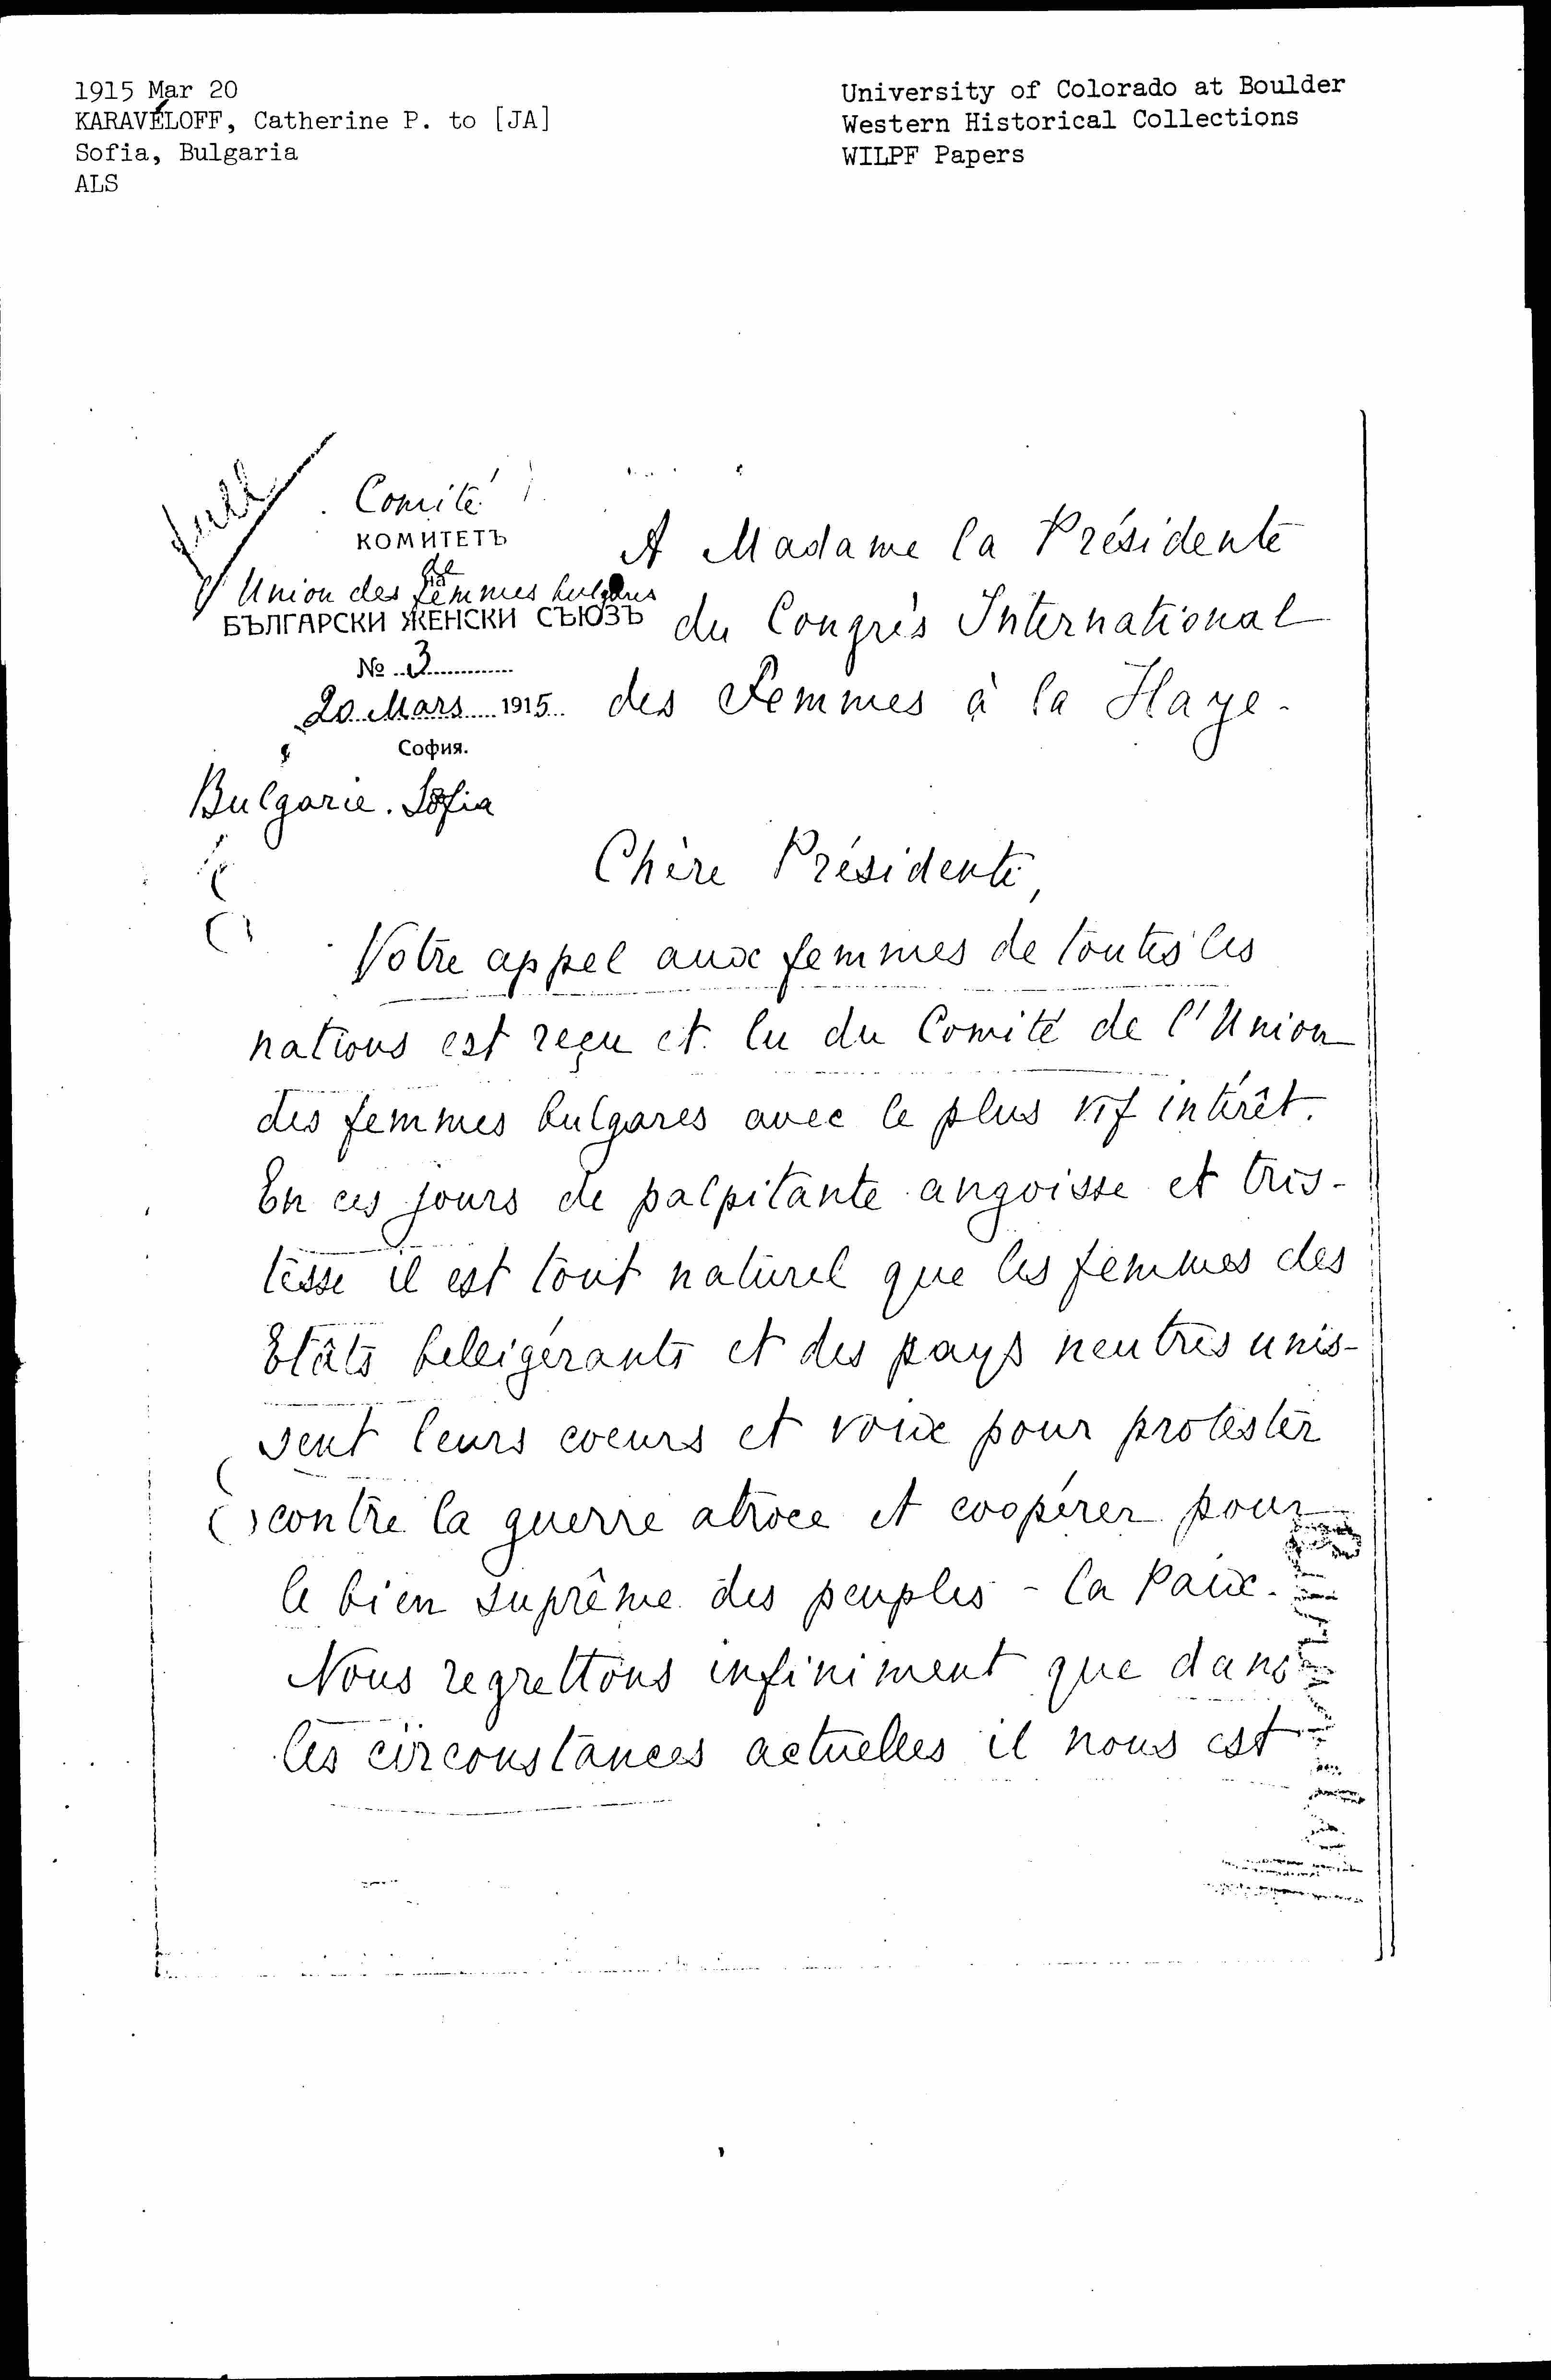 1915 Mar 20
KARAVÉLOFF, Catherine P. to [JA]
Sofia, Bulgaria
ALS
University of Colorado at Boulder
Western Historical Collections
WILPF Papers
full
Comité
КОМИТЕТЪ
de
l'Union des femmes bulgares
НА
БЪЛГАРСКИ ЖЕНСКИ СЪЮЗЪ
№ 3
20 Mars 1915
София.
Bulgarie. Sofia
A Madame la Présidente
du Congrès International
des Femmes à la Haye.
Chère Présidente,
Votre appel aux femmes de toutes les
nations est reçu et lu du Comité de l'Union
des femmes bulgares avec le plus vif intérêt.
En ces jours de palpitante angoisse et tris-
tesse il est tout naturel que les femmes des
Etâts belligérants et des pays neutres unis-
sent leurs coeurs et voix pour protester
contre la guerre atroce et coopérer pour
le bien suprême des peuples - la Paix.
Nous regrettons infiniment que dans
les circonstances actuelles il nous est